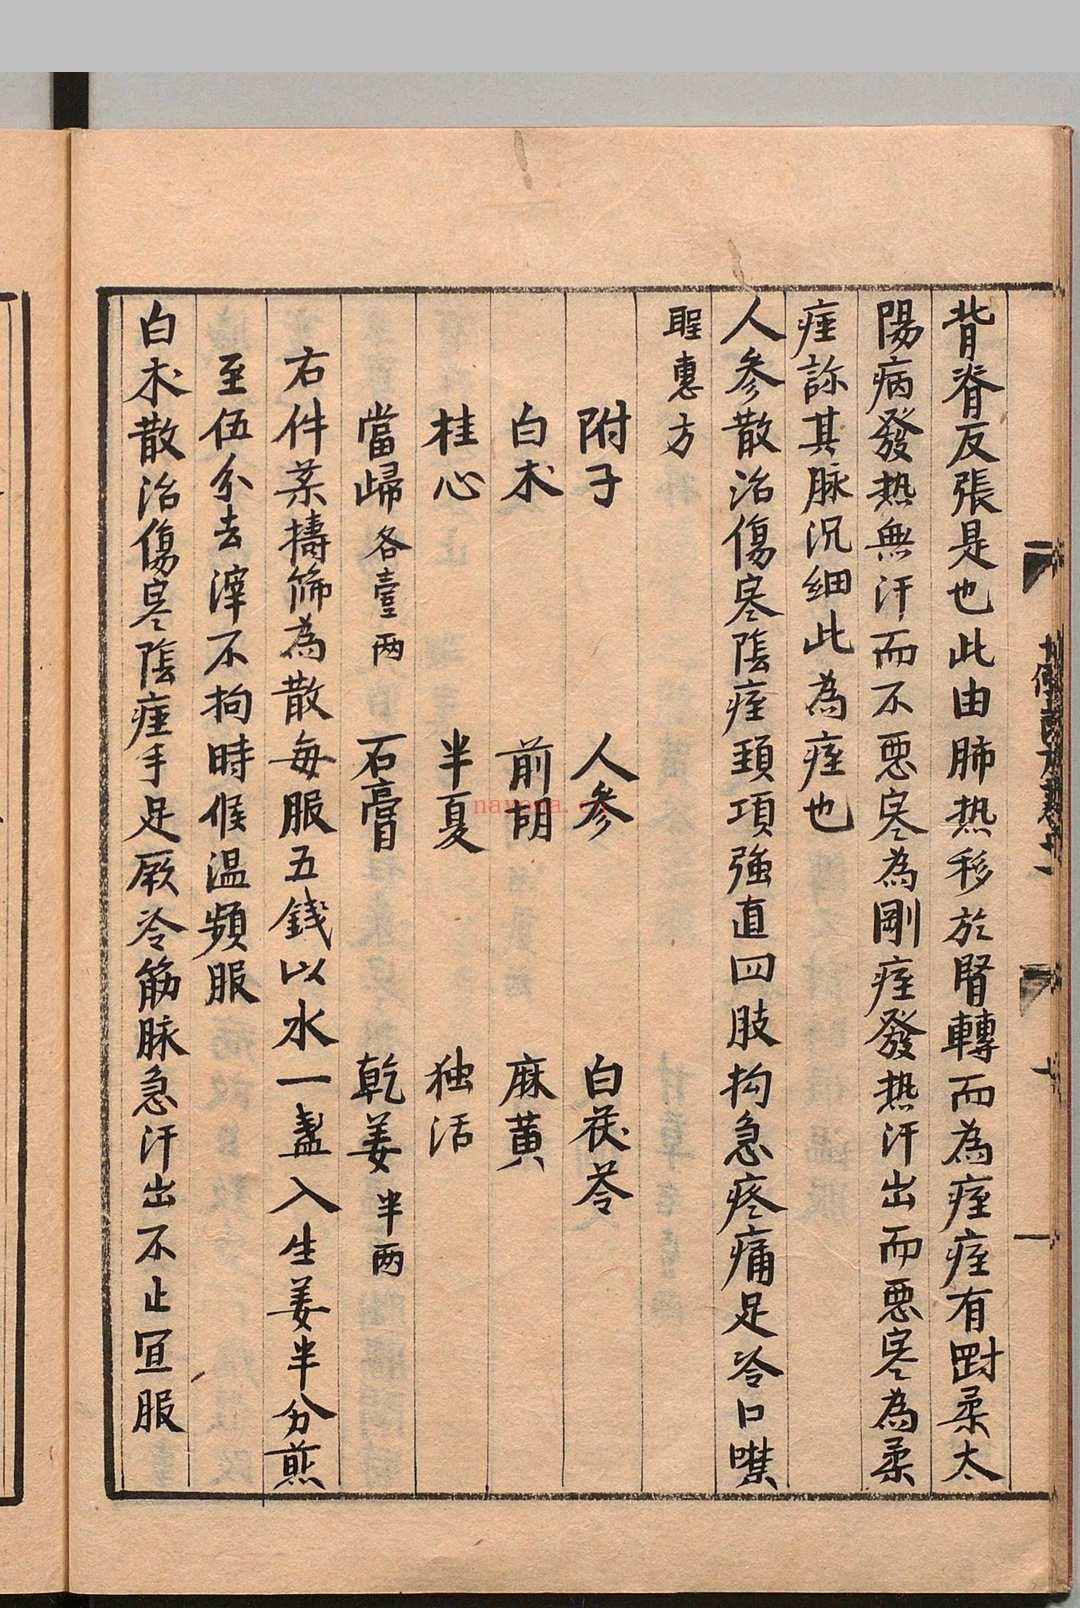 背脊反張是也此由肺热移於腎轉而為痓痓有罰柔太
陽病發热無汗而不悪寒為剛痓發热汗出而悪寒為柔
痓診其脉沉细此為痓也
人参散治傷寒陰痓頚項強直四肢拘急疼痛足冷口噤
聖惠方
附子 人参 白茯苓
白术 前胡 麻黄
桂心 半夏 独活
當歸各壹两 石膏 乾姜半两
右件薬擣篩為散每服五錢以水一盞入生姜半分煎
至伍分去滓不拘時候温頻服
白术散治傷寒陰痓手足厥冷筋脉急汗出不止宜服
nayona.cn